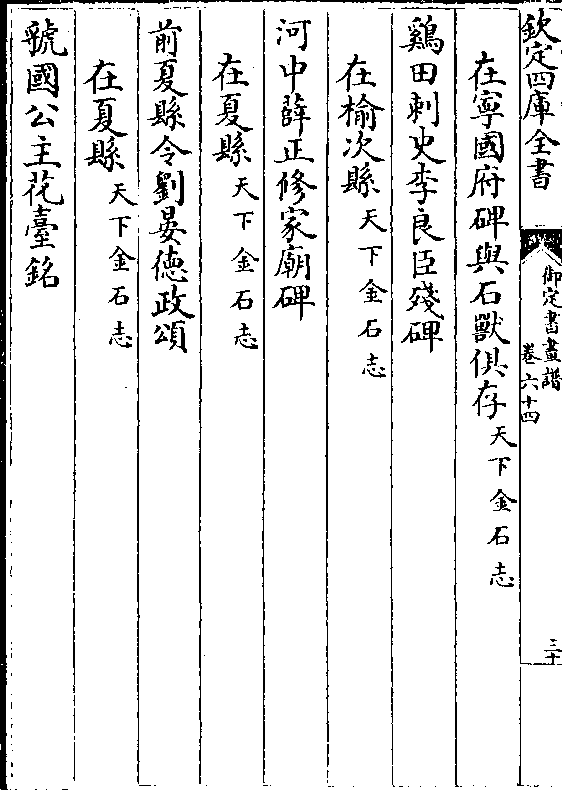 欽定四庫全書
御定書畫譜
卷六十四
三十
在寧國府碑與石獸俱存天下金石志
鷄田刺史李良臣殘碑
在榆次縣天下金石志
河中薛正修家廟碑
在夏縣天下金石志
前夏縣令劉晏德政頌
在夏縣天下金石志
虢國公主花臺銘